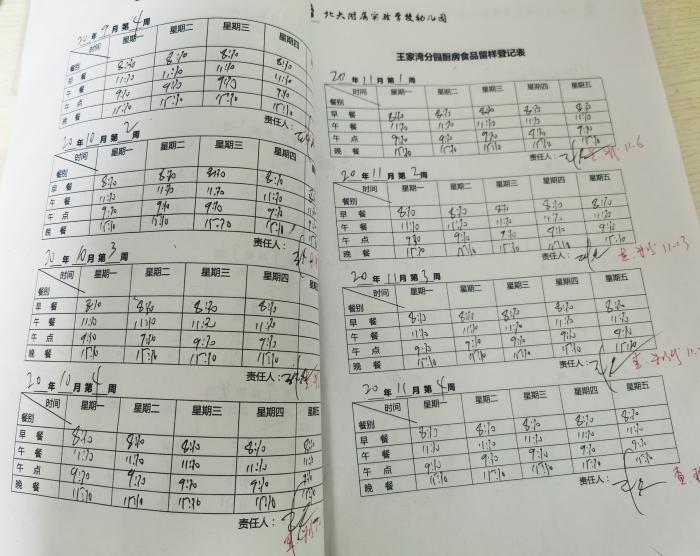 20 年 9 月 第 4 周
时间 星期一 星期二 星期三 星期四
餐别
早 餐 8:30 8:10 8:10 8:10
午 餐 11:10 11:10 11:10 11:10
午 点 9:10 9:10 9:10 9:10
晚 餐 15:10 15:10 15:10 15:10
责任人：
20 年 10 月 第 2 周
时间 星期一 星期二 星期三 星期四
餐别
早 餐 8:10 8:10 8:10 8:10
午 餐 11:10 11:10 11:10 11:10
午 点 9:10 9:10 9:10 9:10
晚 餐 15:10 15:10 15:10 15:10
责任人：
年 10 月 第 3 周
时间 星期一 星期二 星期三 星期四
餐别
早 餐 8:10 8:10 8:10 8:10
午 餐 11:10 11:10 11:10
午 点 9:10 9:10 9:10 9:10
晚 餐 15:10 15:10 15:10 15:10
责任人：
20 年 10 月 第 4 周
时间 星期一 星期二 星期三 星期四
餐别
早 餐 8:10 8:10 8:10 8:10
午 餐 11:10 11:10 11:10 11:10
午 点 9:10 9:10 9:10 9:10
晚 餐 15:10 15:10 15:10 15:10
责任人：
北大附属实验学校幼儿园
王家湾分园厨房食品留样登记表
20 年 11 月 第 1 周
时间 星期一 星期二 星期三 星期四 星期五
餐别
早 餐 8:10 8:10 8:10 8:10 8:10
午 餐 11:10 11:10 11:10 11:10 11:10
午 点 9:10 9:10 9:10 9:10 9:10
晚 餐 15:10 15:10 15:10 15:10 15:10
责任人： 11-6
20 年 11 月 第 2 周
时间 星期一 星期二 星期三 星期四 星期五
餐别
早 餐 8:10 8:10 8:10 8:10 8:10
午 餐 11:10 11:10 11:10 11:10 11:10
午 点 9:10 9:10 9:10 9:10 9:10
晚 餐 15:10 15:10 15:10 15:10 15:10
责任人： 查 11-13
20 年 11 月 第 3 周
时间 星期一 星期二 星期三 星期四 星期五
餐别
早 餐 8:10 8:10 8:10 8:10 8:10
午 餐 11:10 11:10 11:10 11:10 11:10
午 点 9:10 9:10 9:10 9:10 9:10
晚 餐 15:10 15:10 15:10 15:10 15:10
责任人： 查
20 年 11 月 第 4 周
时间 星期一 星期二 星期三 星期四 星期五
餐别
早 餐 8:10 8:10 8:10 8:10 8:10
午 餐 11:10 11:10 11:10 11:10 11:10
午 点 9:10 9:10 9:10 9:10 9:10
晚 餐 15:10 15:10 15:10 15:10 15:10
责任人： 查